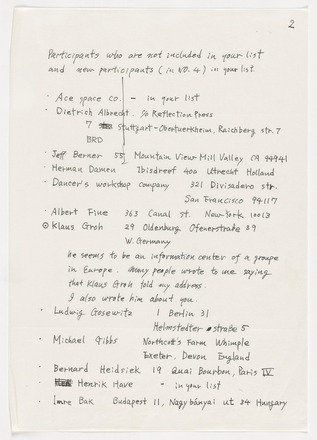 2
Participants who are not included in your list
and new participants (in NO. 4) in your list
· Ace space co. - in your list
· Dietrich Albrecht. c/o Reflection Press
7 Stuttgart-Obertuerkheim, Raichberg str. 7
BRD
· Jeff Berner 55 Mountain View Mill Valley CA 94941
· Herman Damen Ibisdreef 400 Utrecht Holland
· Dancer's workshop company 321 Divisadero str.
San Francisco 94117
· Albert Fine 363 Canal st. New-York 10013
⊙ Klaus Groh 29 Oldenburg Ofenerstraße 39
W. Germany
he seems to be an information center of a groupe
in Europe. many people wrote to me saying
that Klaus Groh told my address.
I also wrote him about you.
· Ludwig Gosewitz 1 Berlin 31
Helmstedter straße 5
· Michael Gibbs Northcott's Farm Whimple
Exeter. Devon England
· Bernard Heidsiek 19 Quai Bourbon, Paris IV
· Henrik Have - in your list
· Imre Bak Budapest 11, Nagybányai ut 34 Hungary